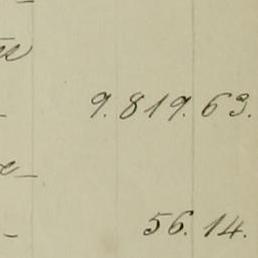 9.819.63.
56.14.